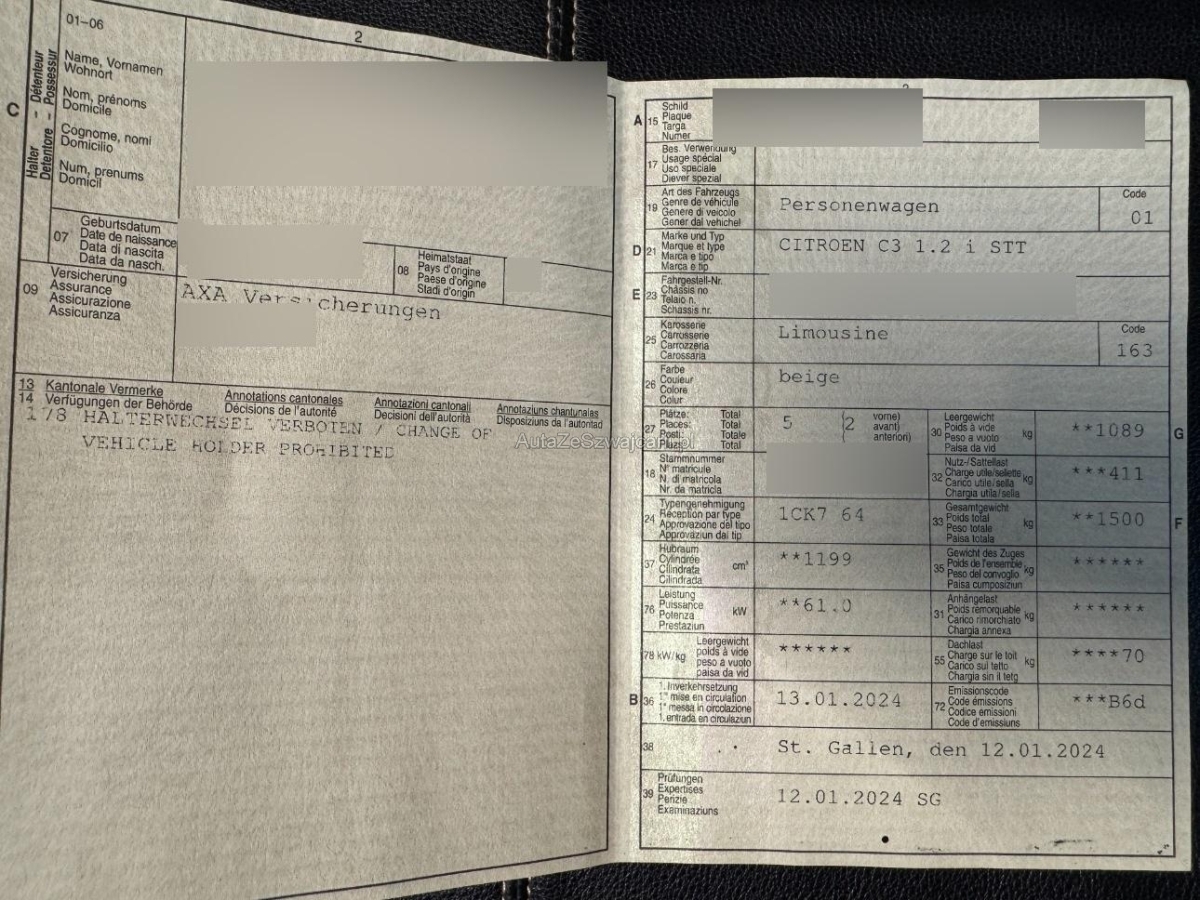 2
C
Halter - Détenteur
Detentore - Possessur
01-06
Name, Vornamen
Wohnort
Nom, prénoms
Domicile
Cognome, nomi
Domicilio
Num, prenums
Domicil
07
Geburtsdatum
Date de naissance
Data di nascita
Data da nasch.
08
Heimatstaat
Pays d'origine
Paese d'origine
Stadi d'origin
09
Versicherung
Assurance
Assicurazione
Assicuranza
AXA Versicherungen
13
14
Kantonale Vermerke
Verfügungen der Behörde
Annotations cantonales
Décisions de l'autorité
Annotazioni cantonali
Decisioni dell'autorità
Annotaziuns chantunalas
Disposiziuns da l'autoritad
178 HALTERWECHSEL VERBOTEN / CHANGE OF
VEHICLE HOLDER PROHIBITED
A
15
Schild
Plaque
Targa
Numer
17
Bes. Verwendung
Usage spécial
Uso speciale
Diever spezial
19
Art des Fahrzeugs
Genre de véhicule
Genere di veicolo
Gener dal vehichel
Personenwagen
Code
01
D
21
Marke und Typ
Marque et type
Marca e tipo
Marca e tip
CITROEN C3 1.2 i STT
E
23
Fahrgestell-Nr.
Châssis no
Telaio n.
Schassis nr.
25
Karosserie
Carrosserie
Carrozzeria
Carossaria
Limousine
Code
163
26
Farbe
Couleur
Colore
Colur
beige
27
Plätze: Total
Places: Total
Posti: Totale
Plazs: Total
5 (2
vorne)
avant)
anteriori)
30
Leergewicht
Poids à vide
Peso a vuoto
Paisa da vid
kg
**1089
G
18
Stammnummer
N° matricule
N. di matricola
Nr. da matricla
32
Nutz-/Sattellast
Charge utile/sellette
Carico utile/sella
Chargia utila/sella
kg
***411
24
Typengenehmigung
Réception par type
Approvazione del tipo
Approvaziun dal tip
1CK7 64
33
Gesamtgewicht
Poids total
Peso totale
Paisa totala
kg
**1500
F
37
Hubraum
Cylindrée
Cilindrata
Cilindrada
cm³
**1199
35
Gewicht des Zuges
Poids de l'ensemble
Peso del convoglio
Paisa cumposiziun
kg
******
76
Leistung
Puissance
Potenza
Prestaziun
kW
**61.0
31
Anhängelast
Poids remorquable
Carico rimorchiato
Chargia annexa
kg
******
78 kW/kg
Leergewicht
poids à vide
peso a vuoto
paisa da vid
******
55
Dachlast
Charge sur le toit
Carico sul tetto
Chargia sin il tetg
kg
****70
B
36
1. Inverkehrsetzung
1re mise en circulation
1a messa in circolazione
1. entrada en circulaziun
13.01.2024
72
Emissionscode
Code émissions
Codice emissioni
Code d'emissiuns
***B6d
38
St. Gallen, den 12.01.2024
39
Prüfungen
Expertises
Perizie
Examinaziuns
12.01.2024 SG
AutaZeSzwajcarii.pl